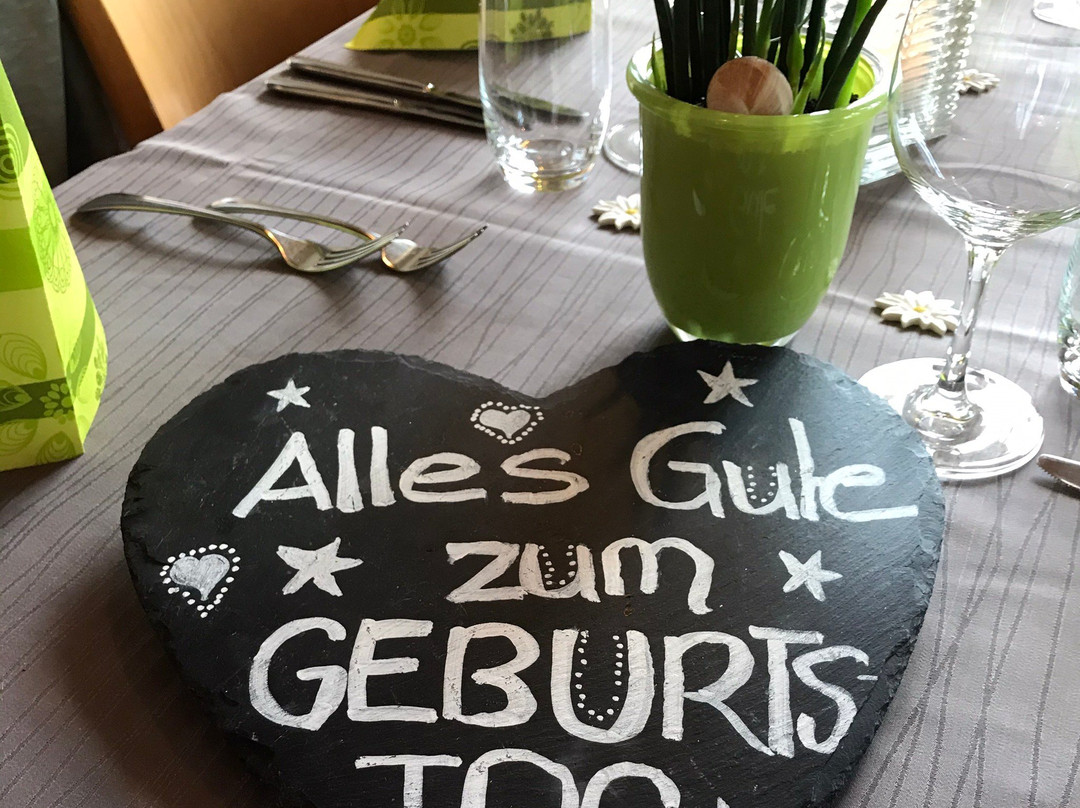 Alles Gute
zum
GEBURTS-
TAG